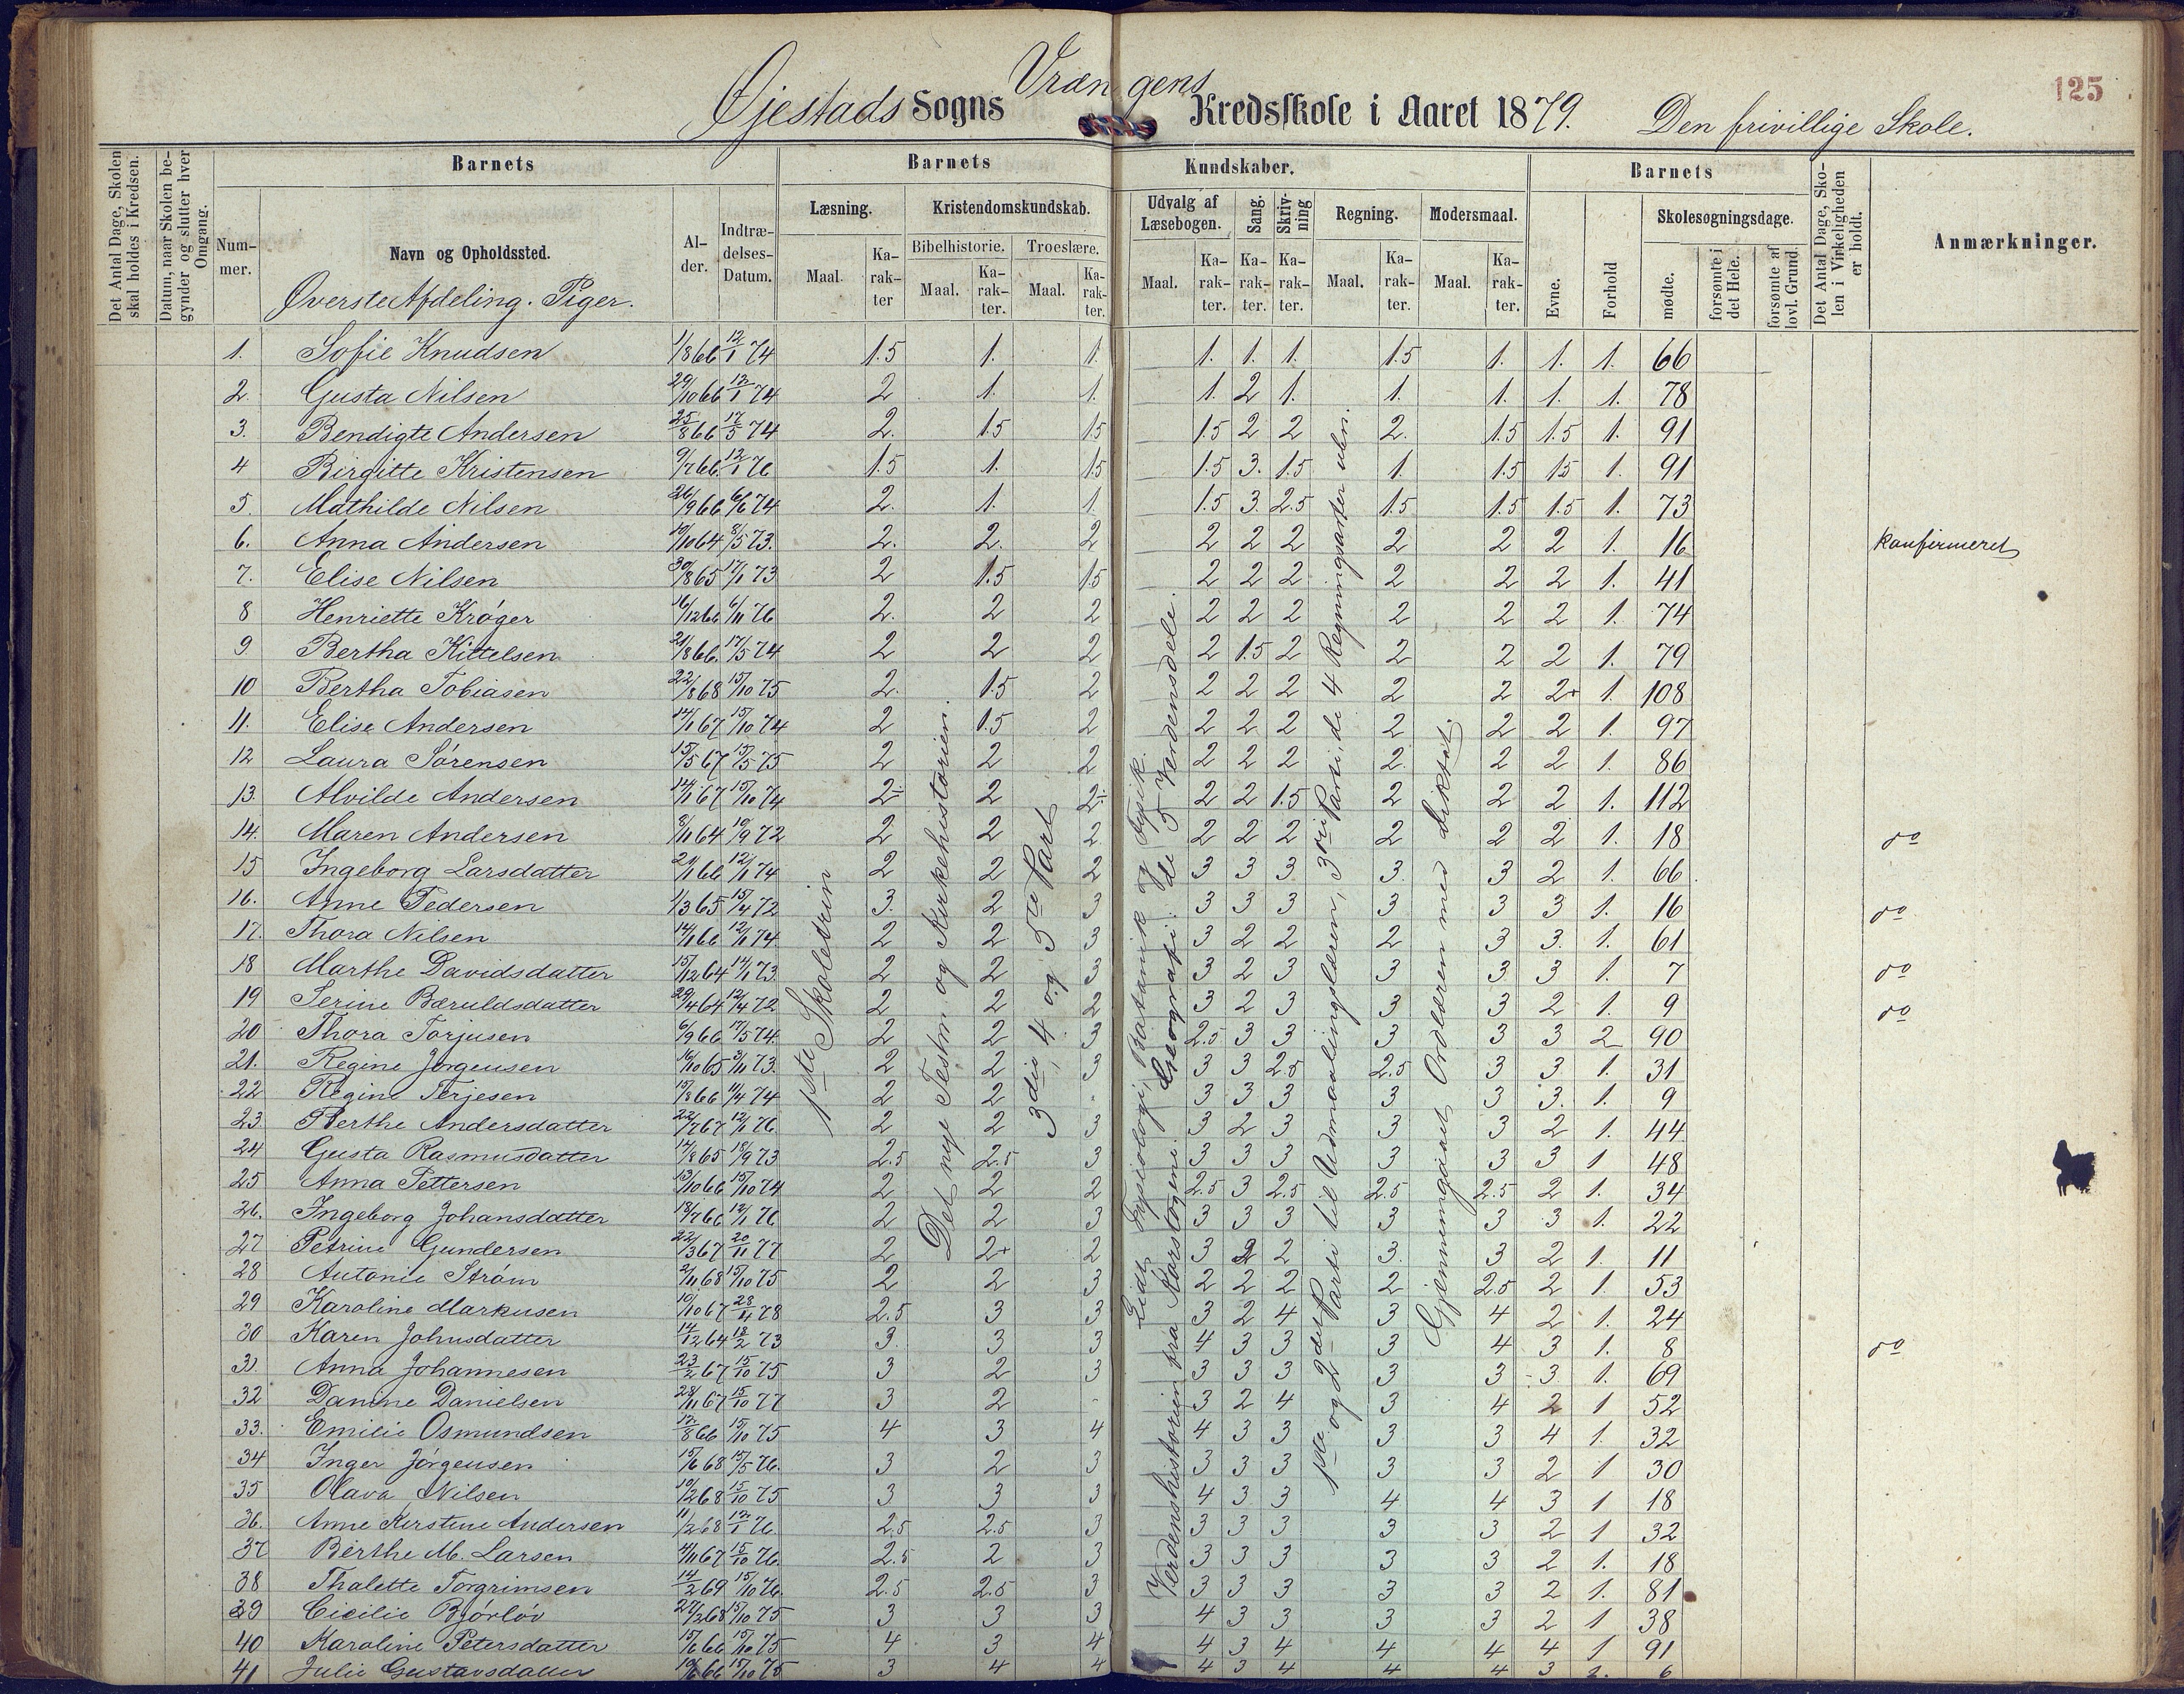 125
Øjestads Sogns Vrængens Kredsskole i Aaret 1879. Den frivillige Skole.
Det Antal Dage, Skolen skal holdes i Kredsen.
Datum, naar Skolen begynder og slutter hver Omgang.
Barnets
Barnets
Kundskaber.
Barnets
Det Antal Dage, Skolen i Virkeligheden er holdt.
Anmærkninger.
Nummer.
Navn og Opholdssted.
Alder.
Indtrædelses-Datum.
Læsning.
Kristendomskundskab.
Udvalg af Læsebogen.
Sang.
Skrivning
Regning.
Modersmaal.
Evne.
Forhold
Skolesøgningsdage.
Bibelhistorie.
Troeslære.
Maal.
Karakter
Maal.
Karakter.
Maal.
Karakter.
Maal.
Karakter.
Karakter.
Karakter.
Maal.
Karakter.
Maal.
Karakter.
mødte.
forsømte i det Hele.
forsømte af lovl. Grund
Øverste Afdeling. Piger.
1. Sofie Knudsen 1/8 66 12/1 74 1.5 1. 1. 1. 1. 1. 1.5 1. 1. 1. 66
2. Gusta Nilsen 29/10 66 12/1 74 2 1. 1. 1. 2 1. 1. 1. 1. 1. 78
3. Bendigte Andersen 25/8 66 17/5 74 2. 1.5 1.5 1.5 2 2 2. 1.5 1.5 1. 91
4 Birgitte Kristensen 9/7 66 12/1 76 1.5 1. 1.5 1.5 3. 1.5 1. 1.5 1.5 1. 91
5. Mathilde Nilsen 26/9 66 6/6 74 2. 1. 1. 1.5 3. 2.5 1.5 1.5 1.5 1. 73
6. Anna Andersen 10/10 64 8/5 73. 2. 2. 2 2 2 2 2 2 2 1. 16 konfirmeret
7. Elise Nilsen 30/8 65 17/1 73 2 1.5 1.5 2 2 2 2 2 2 1. 41
8 Henriette Krøger 16/12 66 6/11 76 2. 2 2 2 2 2 2 2 2 1. 74
9 Bertha Kittelsen 21/8 66. 17/5 74 2 2 2 2 1.5 2 2 2 2 1. 79
10 Bertha Tobiasen 22/8 68 15/10 75 2. 1.5 2 2 2 2 2 2 2+ 1. 108
11. Elise Andersen 14/1 67 15/10 74 2 1.5 2 2 2 2 2 2 2 1. 97
12 Laura Sørensen 15/5 67 15/5 75 2 2 2 2 2 2 2. 2 2 1. 86
13. Alvilde Andersen 14/1 67 15/10 74 2÷ 2 2÷ 2 2 1.5 2 2 2 1. 112
14. Maren Andersen 8/11 64 10/9 72 2 2 2 2 2 2 2 2 2 1. 18 do
15 Ingeborg Larsdatter 21/1 66 12/1 74 2 2 2 3 3 3 3. 3 2 1. 66
16. Anne Pedersen 1/3 65 15/4 72 3. 2 3 3 3 3 3 3 3 1. 16 do
17. Thora Nelsen 14/1 66 12/1 74 2 2 3 3 2 2 2 3 3. 1. 61
18 Marthe Davidsdatter 15/12 64 14/1 73. 2 2 3 3 2 3 3 3 3 1. 7 do
19 Serine Bæruldsdatter 29/4 64 12/4 72 2 2 2 3 2 3 3 3 2 1. 9 do
20 Thora Torjusen 6/9 66 17/5 74. 2 2 3 2.5 3 3 3 3 3 2 90
21. Regine Jørgensen 16/10 65 3/11 73. 2 2 3 3 3 2.5 2.5 3 3 1. 31
22 Regine Terjesen 15/8 66 11/4 74 2 2 3 3 3 3 3 3. 1. 9
23. Berthe Andersdatter 22/7 67 12/1 76 2 2 3 3 2 3 3 3 2 1. 44
24 Gusta Rasmusdatter 14/8 65 18/9 73 2.5 2.5 3 3 3 3 3 3 3 1 48
25 Anna Pettersen 13/10 66 15/10 74 2 2 2 2.5 3 2.5 2.5 2.5 2 1. 34
26. Ingeborg Johansdatter 18/7 66 12/1 76 2 2 3 3 3 3 3 3 3 1. 22
27 Petrine Gundersen 22/3 67 20/11 77 2 2+ 2 3 2 2 3. 3 2 1. 11
28 Antonie Strøm 2/11 68 15/10 75 2 2 3 2 2 2 2 2.5 2 1. 53
29 Karoline Markusen 10/10 67 28/11 78 2.5 3 3 3 2 4 3 4 2 1. 24
30 Karen Johnsdatter 14/12 64 18/2 73 3. 3 3 4 3 3 3 4 3 1. 8 do
31. Anna Johannesen 23/2 67 15/10 75 3 2 3 3 3 3 3 3 3 1. 69
32 Danine Danielsen 28/11 67 15/10 77 3 2 - 3 2 4 3 4 2 1 52
33. Emilie Osmundsen 12/8 66 15/10 75 4 3 4 4 3 3 3 3 4 1. 32
34 Inger Jørgensen 15/6 68 15/5 76. 3 2 3 3 3 3 3 3 2 1 30
35 Olava Nilsen 10/2 68 15/10 75 3 3 3 4 3 3 4 4 3 1 18
36. Anne Kirstine Andersen 11/2 68 12/1 76. 2.5 2.5 3 3 3 3 3 3 2 1 32
37 Berthe M. Larsen 4/11 67 15/10 76. 2.5 2 3 3 3 3 3 3 2 1. 18
38 Thalette Torgrimsen 14/2 69 15/10 76. 2.5 2.5 3 3 3 3 3 3 2 1. 81
39 Cicilie Bjørløv 27/2 68 15/10 75 3 3 3 4 3 3 3 3 2 1 38
40 Karoline Petersdatter 15/6 66 15/10 75 4 3 4 4 3 4 4 4 4 1 91
41 Julie Gustavsdatter 10/6 66 15/10 75 3 4 4 4 3 4 4 4 3 1. 6
1ste Skoletrin
Det nye Testm og Kirkehistorien.
3die, 4 og 5te Part
Lidt Fysiologi, Botanik og Fysik.
Verdenshistorien fra Korstogene. Geografi: de 5 Verdensdele.
1ste og 2det Parti til Udmaalingslæren, 3die Parti, de 4 Regningsarter uben.
Gjennemgaaet Ordlæren med diktat.